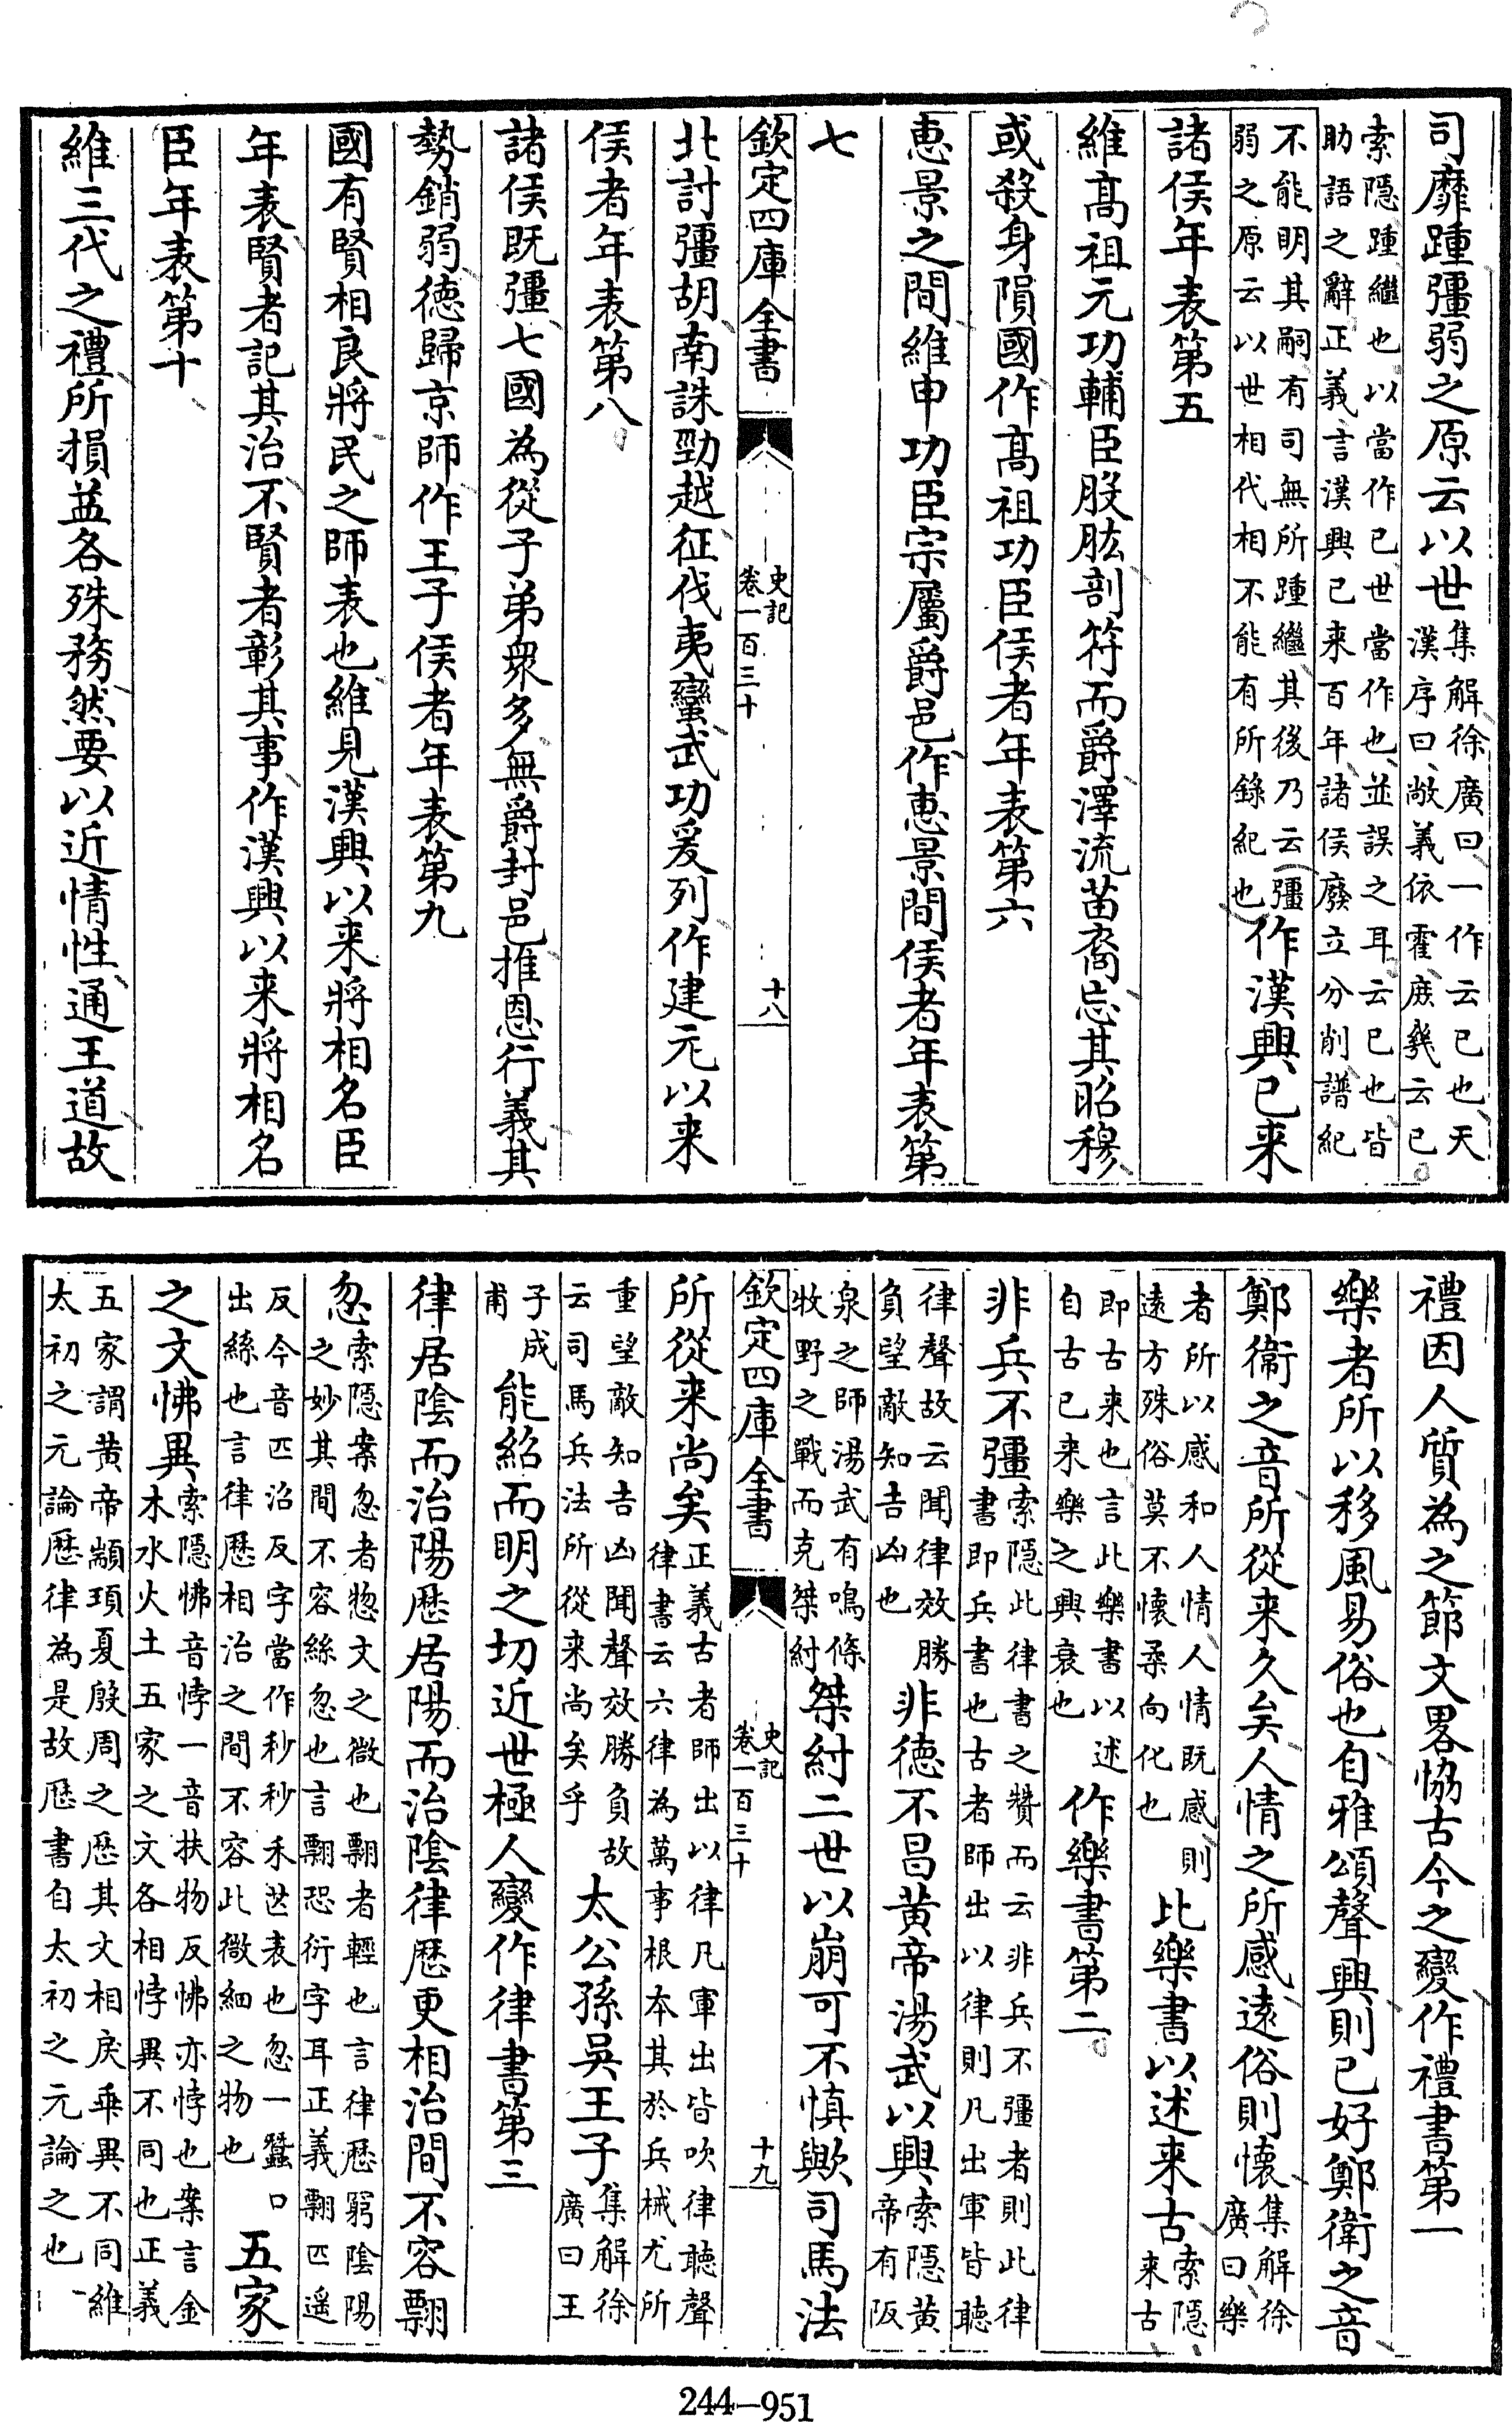 司靡踵彊弱之原云以世集解徐廣曰一作云已也天
漢序曰敞義依霍庻㡬云已
索隠踵繼也以當作已世當作也並誤之耳云已也皆
助語之辭正義言漢興已来百年諸侯廢立分削譜紀
不能明其嗣有司無所踵繼其後乃云彊
弱之原云以世相代相不能有所錄紀也作漢興已来
諸侯年表第五
維髙祖元功輔臣股肱剖符而爵澤流苗裔忘其昭穆
或殺身隕國作髙祖功臣侯者年表第六
惠景之間維申功臣宗屬爵邑作惠景間侯者年表第
七
欽定四庫全書 史記卷一百三十 十八
北討彊胡南誅勁越征伐夷蠻武功爰列作建元以来
侯者年表第八
諸侯既彊七國為從子弟衆多無爵封邑推恩行義其
勢銷弱德歸京師作王子侯者年表第九
國有賢相良將民之師表也維見漢興以来將相名臣
年表賢者記其治不賢者彰其事作漢興以来將相名
臣年表第十
維三代之禮所損益各殊務然要以近情性通王道故
禮因人質為之節文畧協古今之變作禮書第一
樂者所以移風易俗也自雅頌聲興則已好鄭衛之音
鄭衛之音所從来久矣人情之所感遠俗則懐集解徐
廣曰樂
者所以感和人情人情既感則
遠方殊俗莫不懐柔向化也比樂書以述来古索隠
来古
即古来也言此樂書以述
自古已来樂之興衰也作樂書第二
非兵不彊索隠此律書之贊而云非兵不彊者則此律
書即兵書也古者師出以律則凡出軍皆聴
律聲故云聞律效勝
負望敵知吉凶也非德不昌黄帝湯武以興索隠黄
帝有阪
泉之師湯武有鳴條
牧野之戰而克桀紂桀紂二世以崩可不慎歟司馬法
欽定四庫全書 史記卷一百三十 十九
所從来尚矣正義古者師出以律凡軍出皆吹律聴聲
律書云六律為萬事根本其於兵械尤所
重望敵知吉凶聞聲效勝負故
云司馬兵法所從来尚矣乎太公孫吳王子集解徐
廣曰王
子成
甫能紹而明之切近世極人變作律書第三
律居陰而治陽厯居陽而治陰律厯更相治間不容翲
忽索隠案忽者惣文之微也翲者輕也言律厯窮陰陽
之妙其間不容絲忽也言翲恐衍字耳正義翲匹遥
反今音匹沼反字當作秒秒禾芒表也忽一蠶口
出絲也言律厯相治之間不容此微細之物也五家
之文怫異索隠怫音悖一音扶物反怫亦悖也案言金
木水火土五家之文各相悖異不同也正義
五家謂黄帝顓頊夏殷周之厯其文相戾乖異不同維
太初之元論厯律為是故厯書自太初之元論之也
244-951